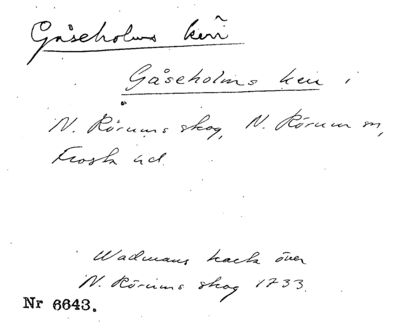 Gåseholms kerr
Gåseholms kerr i
N. Rörums skog, N. Rörum sn,
Frosta hd.
Wadmans karta över
N. Rörums skog 1733.
Nr 6643.